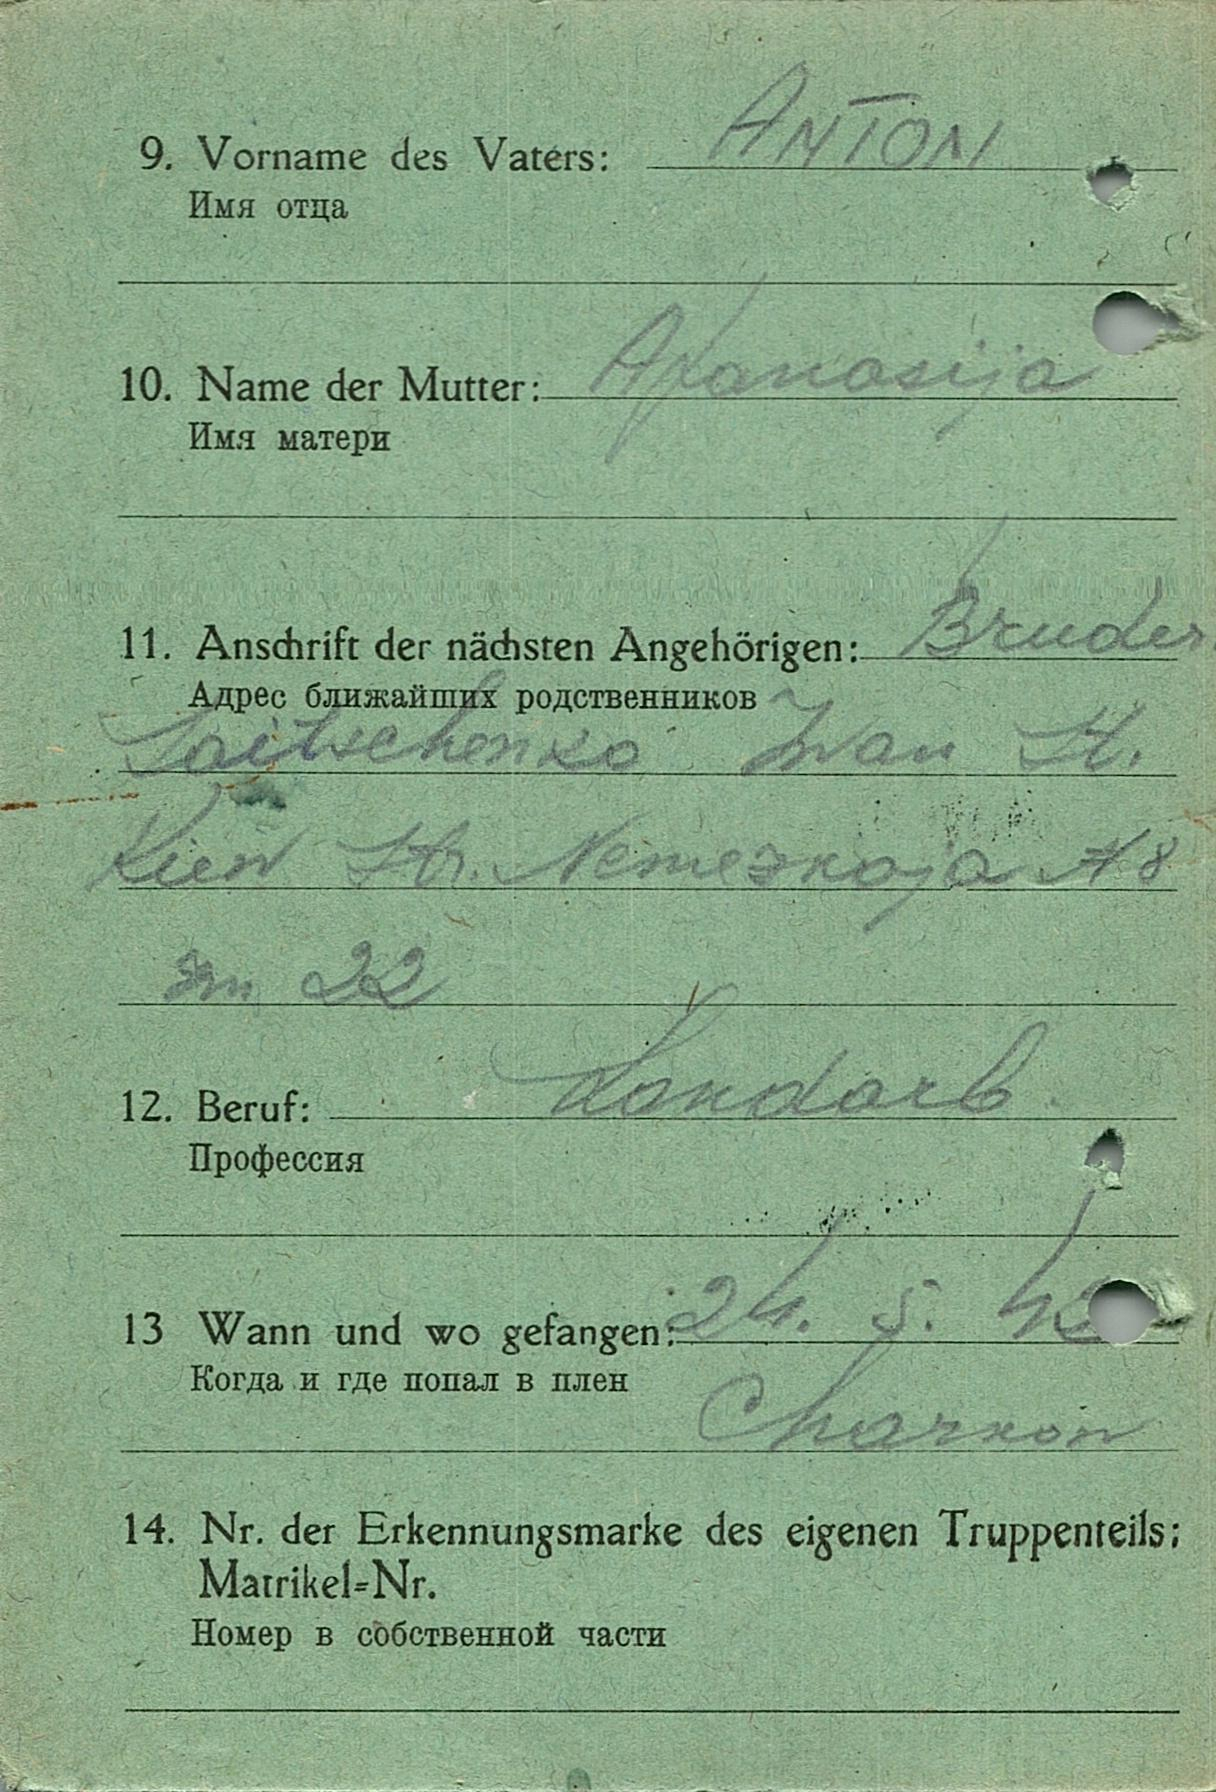 9. Vorname des Vaters: ANTON
Имя отца
10. Name der Mutter: Afanasija
Имя матери
11. Anschrift der nächsten Angehörigen: Bruder.
Адрес ближайших родственников
Saitschenko Iwan
Kiew Str. Nemezkaja N 8
22
12. Beruf: Landarb.
Профессия
13 Wann und wo gefangen: 24. 5. 42
Когда и где попал в плен
Charkow
14. Nr. der Erkennungsmarke des eigenen Truppenteils:
Matrikel=Nr.
Номер в собственной части